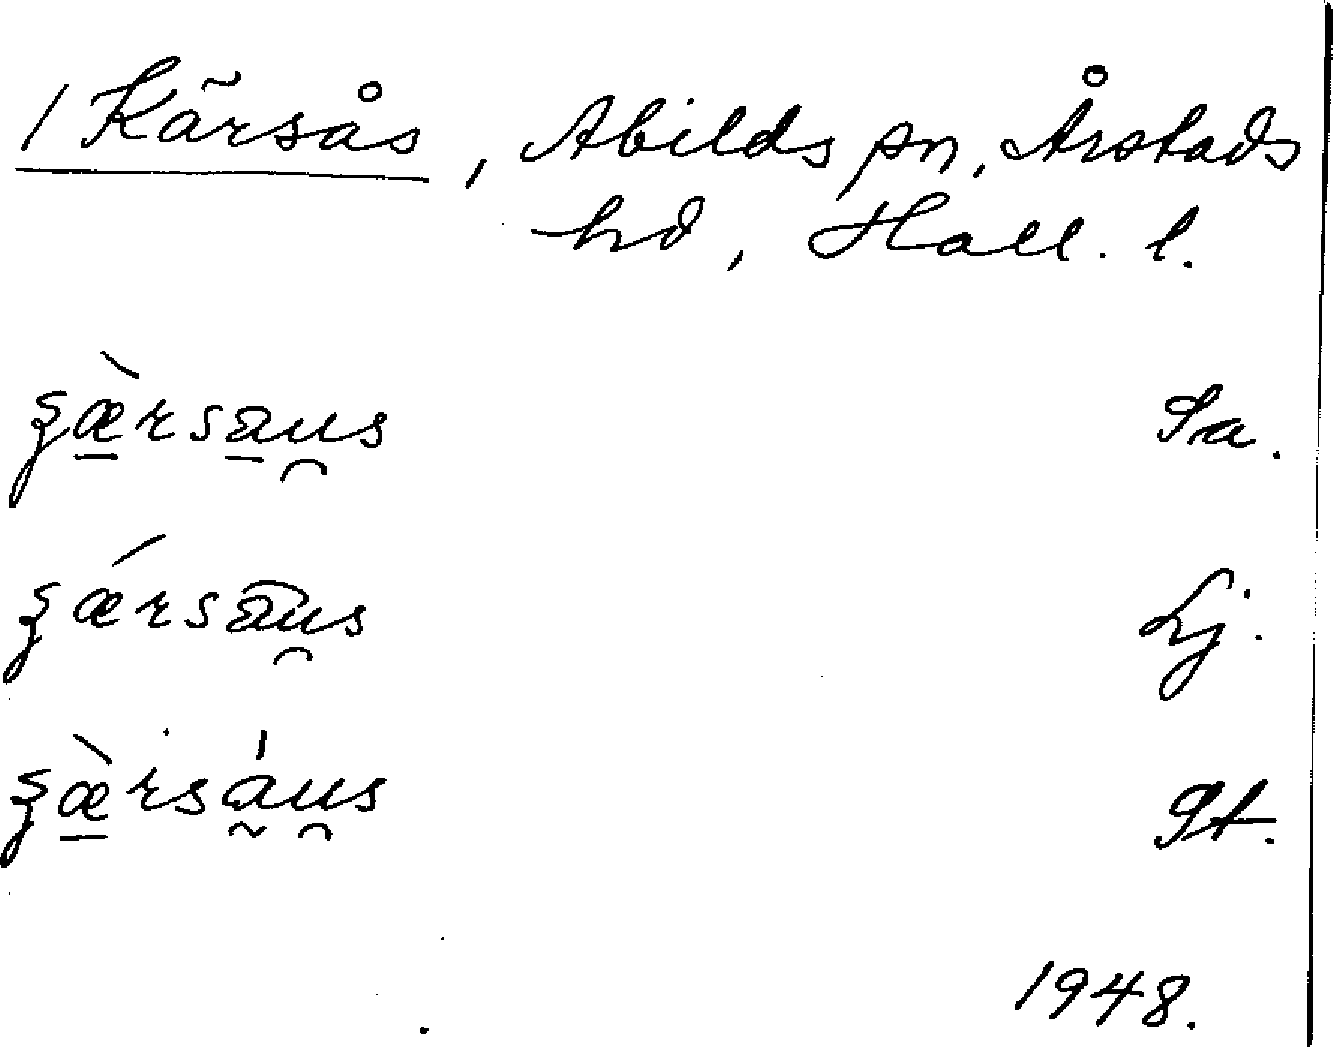 1 Kãrsås, Abilds sn, Årstads
hd, Hall. l.
ʓæ̠̀rsa̠u̯s Sa.
ʓǽrsa͞u̯s Lj.
ʓæ̠̀rsa̰̍u̯s St.
1948.